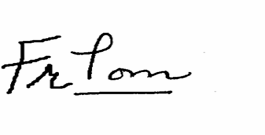 Fr Tom